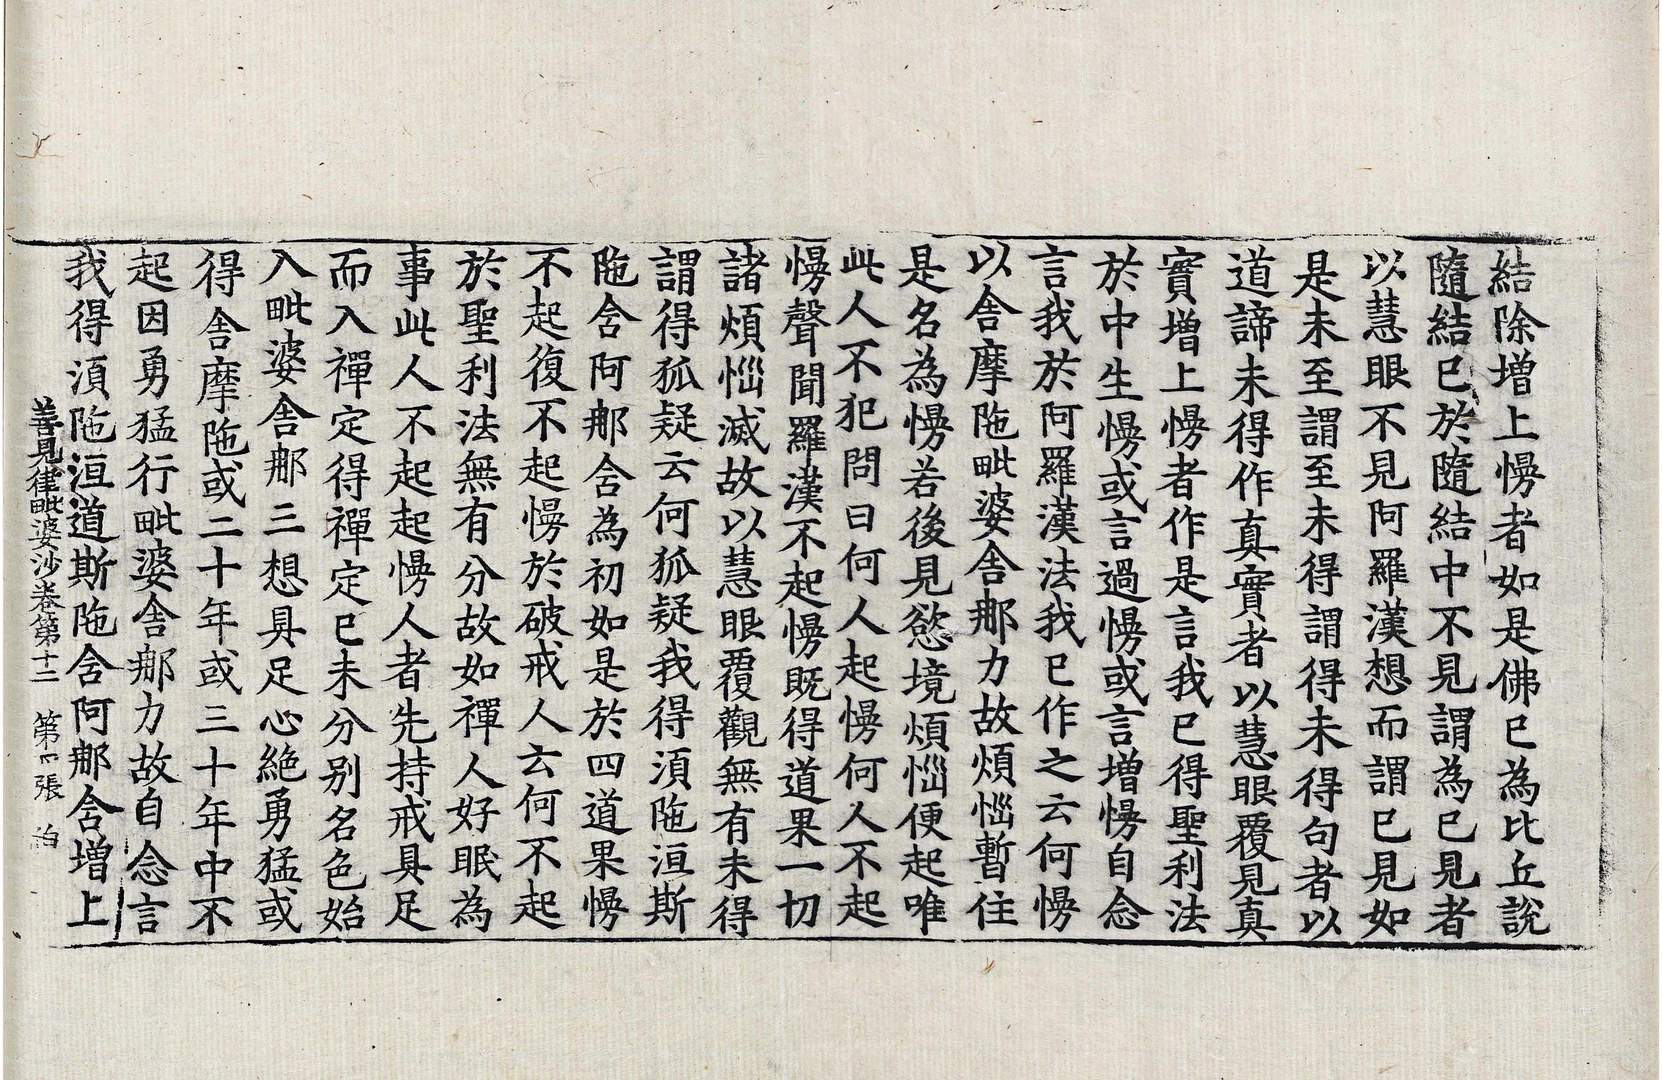 結除增上慢者如是佛已為比丘說
隨結已於隨結中不見謂為已見者
以慧眼不見阿羅漢想而謂已見如
是未至謂至未得謂得未得句者以
道諦未得作真實者以慧眼覆見真
實增上慢者作是言我已得聖利法
於中生慢或言過慢或言增慢自念
言我於阿羅漢法我已作之云何慢
以舍摩陁毗婆舍那力故煩惱暫住
是名為慢若後見慾境煩惱便起唯
此人不犯問曰何人起慢何人不起
慢聲聞羅漢不起慢既得道果一切
諸煩惱滅故以慧眼覆觀無有未得
謂得狐疑云何狐疑我得湏陁洹斯
陁含阿那含為初如是於四道果慢
不起復不起慢於破戒人云何不起
於聖利法無有分故如禪人好眠為
事此人不起起慢人者先持戒具足
而入禪定得禪定已未分別名色始
入毗婆舍那三想具足心絶勇猛或
得舍摩陁或二十年或三十年中不
起因勇猛行毗婆舍那力故自念言
我得湏陁洹道斯陁含阿那含增上
善見律毗婆沙卷第十二 第四張 治